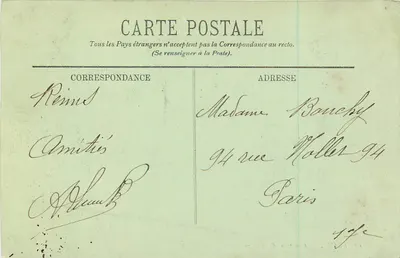 CARTE POSTALE
Tous les Pays étrangers n'acceptent pas la Correspondance au recto.
(Se renseigner à la Poste).
CORRESPONDANCE
ADRESSE
Reims
Amitiés
Madame Bouchy
94 rue Nollet 94
Paris